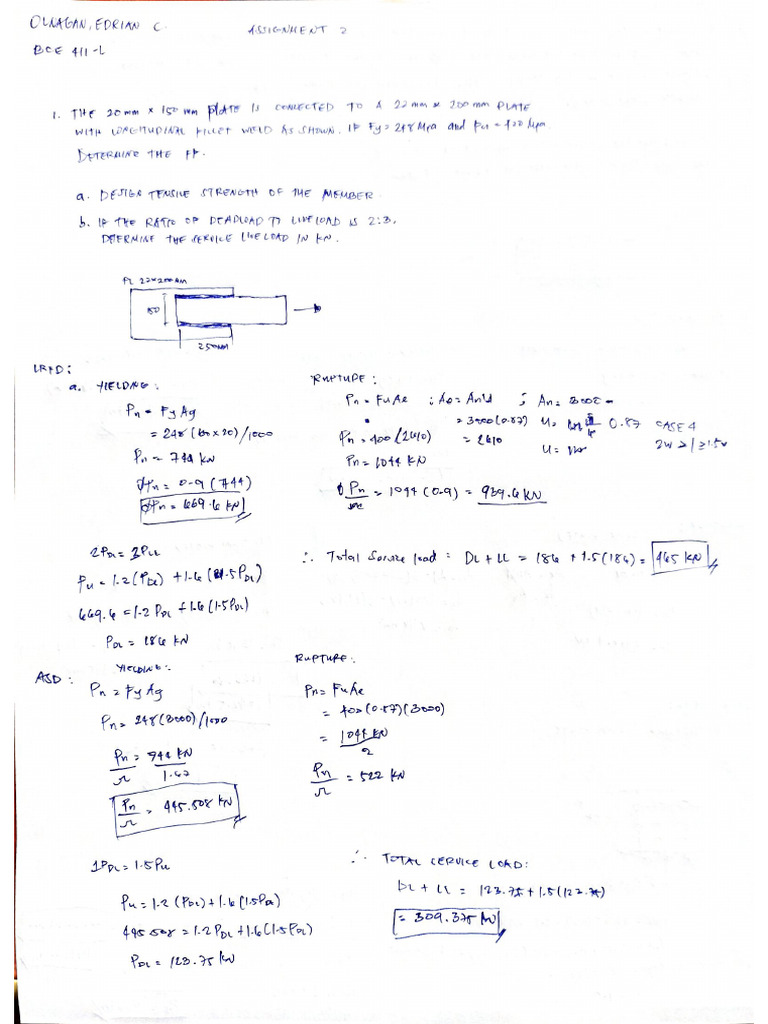 OLNAGAN, EDRIAN C.
ASSIGNMENT 2
BCE 411-L
1. THE 20mm x 150 mm PLATE IS CONNECTED TO A 22mm x 200mm PLATE
WITH LONGITUDINAL FILLET WELD AS SHOWN. IF Fy = 248 Mpa and Fu = 400 Mpa.
DETERMINE THE FF.
a. DESIGN TENSILE STRENGTH OF THE MEMBER.
b. IF THE RATIO OF DEADLOAD TO LIVELOAD IS 2:3,
DETERMINE THE SERVICE LIVELOAD IN KN.
PL 22x200mm
150
250mm
LRFD:
a. YIELDING:
Pn = Fy Ag
= 248 (150 x 20) /1000
Pn = 744 KN
ØPn = 0.9 (744)
ØPn = 669.6 KN
RUPTURE:
Pn = Fu Ae ; Ae = AnU ; An = 3000
= 3000 (0.87) U = 0.87 CASE 4
Pn = 400 (2610) = 2610
Pn = 1044 KN
= 1044 (0.9) = 939.6 KN
2PDL = 3PLL
Pu = 1.2 (PDL) + 1.6 (1.5PDL)
669.6 = 1.2 PDL + 1.6 (1.5PDL)
PDL = 186 KN
∴ Total Service load = DL + LL = 186 + 1.5 (186) = 465 KN
ASD:
YIELDING:
Pn = Fy Ag
Pn = 248 (3000) /1000
Pn/Ω = 744 KN/1.67
Pn/Ω = 445.508 KN
RUPTURE:
Pn = Fu Ae
= 400 (0.87) (3000)
= 1044 KN/2
Pn/Ω = 522 KN
1PDL = 1.5PLL
Pu = 1.2 (PDL) + 1.6 (1.5PDL)
445.508 = 1.2PDL + 1.6 (1.5PDL)
PDL = 123.75 KN
∴ TOTAL SERVICE LOAD:
DL + LL = 123.75 + 1.5 (123.75)
= 309.375 KN